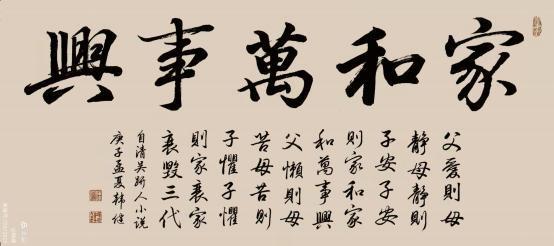 家和萬事興
父愛則母
靜母靜則
子安子安
則家和家
和萬事興
父懶則母
苦母苦則
子懼子懼
則家衰家
衰毀三代
自清吴趼人小说
庚子孟夏韩